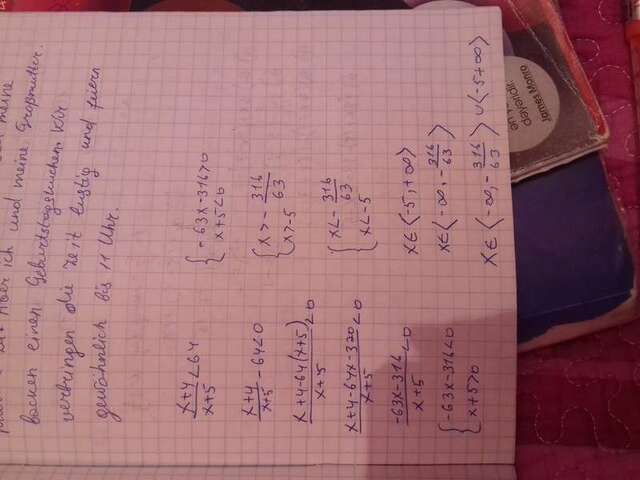 aber ich und meine
backen einen Geburtstagskuchen. Wir
verbringen die Zeit lustig und feiern
gewöhnlich bis 11 Uhr.
x+4/x+5 < 64
x+4/x+5 - 64 < 0
x+4-64(x+5)/x+5 < 0
x+4-64x-320/x+5 < 0
-63x-316/x+5 < 0
{ -63x-316<0
x+5>0
{ -63x-316>0
x+5<0
{ x > - 316/63
x > -5
{ x < - 316/63
x < -5
x ∈ (-5, +∞)
x ∈ (-∞, - 316/63)
x ∈ (-∞, - 316/63) ∪ (-5 +∞)
James Morrio